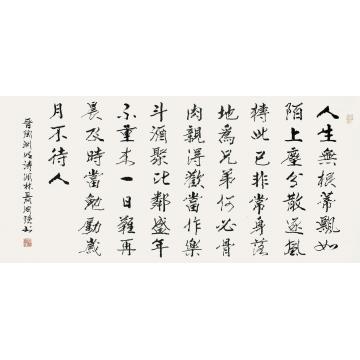 人生無根蒂飄如
陌上塵分散逐風
轉此已非常身落
地為兄弟何必骨
肉親得歡當作樂
斗酒聚比鄰盛年
不重來一日難再
晨及時當勉勵歲
月不待人
晉陶淵明詩